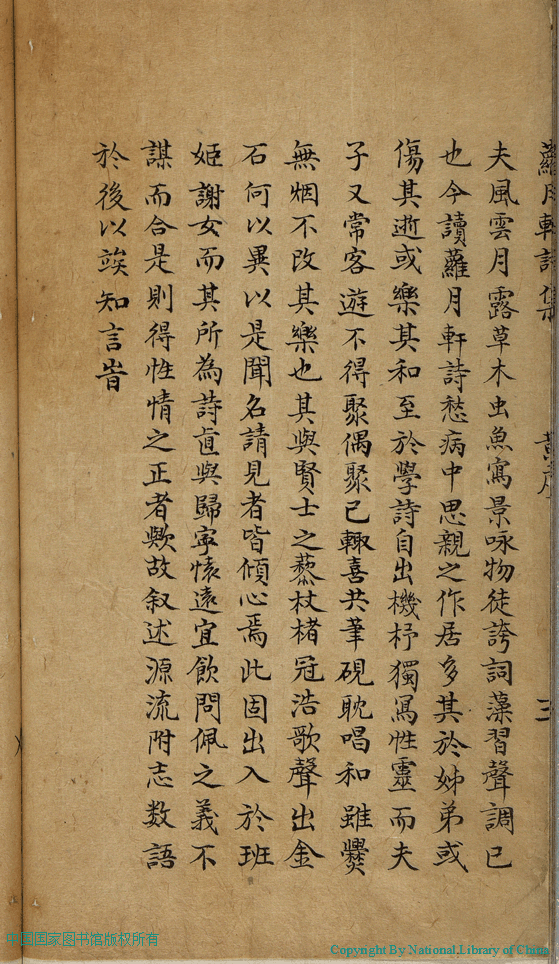 蘿月軒詩集 黃序 三
夫風雲月露草木虫魚寫景咏物徒誇詞藻習聲調已
也今讀蘿月軒詩愁病中思親之作居多其於姊弟或
傷其逝或樂其和至於學詩自出機杼獨寫性靈而夫
子又常客遊不得聚偶聚已輙喜共筆硯耽唱和雖爨
無烟不改其樂也其與賢士之藜杖楮冠浩歌聲出金
石何以異以是聞名請見者皆傾心焉此固出入於班
姬謝女而其所為詩直與歸寕懐遠宜飲問佩之義不
謀而合是則得性情之正者歟故叙述源流附志数語
於後以竢知言者
中国国家图书馆版权所有
Copyright By National Library of China